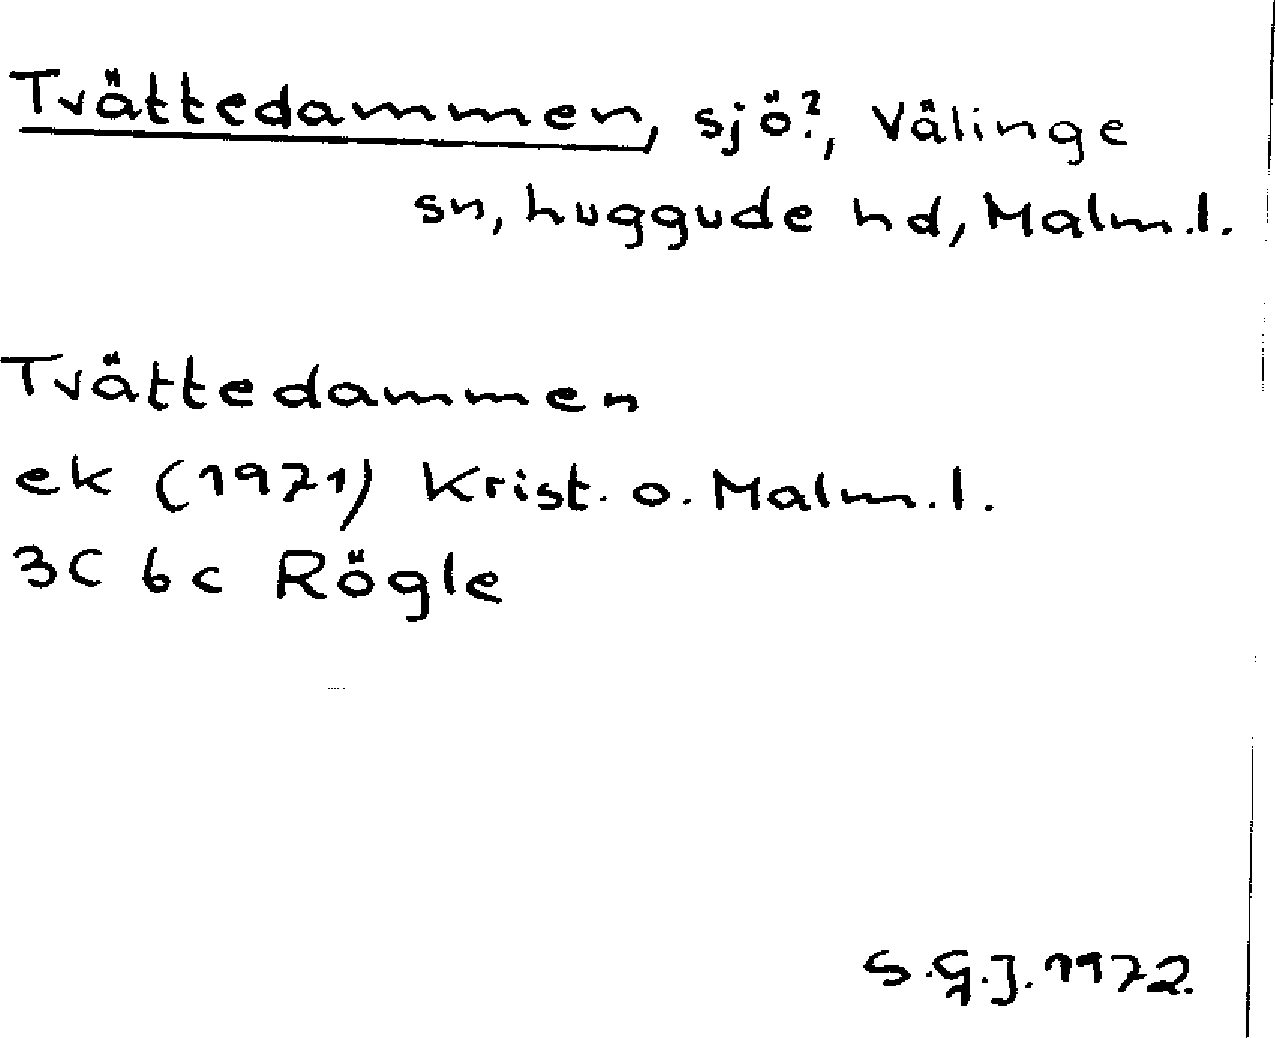 Tvättedammen, sjö?, Välinge
sn, huggude hd, Malm.l.
Tvättedammen
ek (1971) Krist. o. Malm.l.
3C 6c Rögle
S.G.J. 1972.